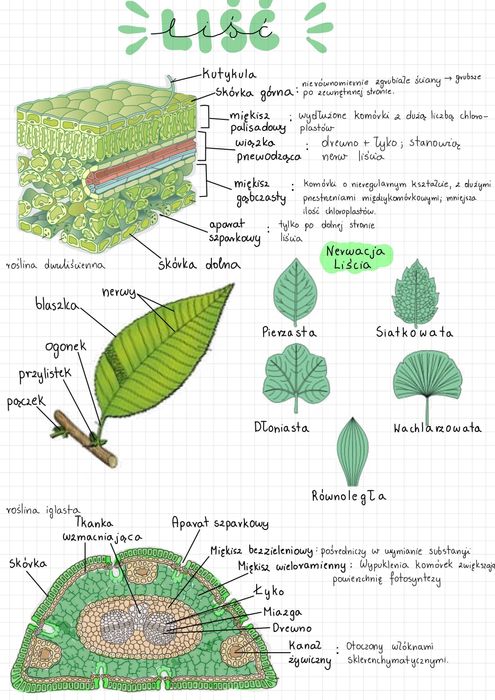 liść
kutykula
skórka górna : nierównomiernie zgrubiałe ściany → grubsze
po zewnętrznej stronie.
miękisz
palisadowy : wydłużone komórki z dużą liczbą chloro-
plastów
wiązka
przewodząca : drewno + łyko ; stanowią
nerw liścia
miękisz
gąbczasty : komórki o nieregularnym kształcie, z dużymi
przestrzeniami międzykomórkowymi; mniejsza
ilość chloroplastów.
aparat
szparkowy : tylko po dolnej stronie
liścia
skórka dolna
roślina dwuliścienna
Nerwacja
Liścia
nerwy
blaszka
ogonek
przylistek
pączek
Pierzasta
Siatkowata
Dłoniasta
Wachlarzowata
Równoległa
roślina iglasta
Tkanka
wzmacniająca
Aparat szparkowy
Skórka
Miękisz bezzieleniowy : pośredniczy w wymianie substanyi
Miękisz wieloramienny : Wypuklenia komórek zwiększają
powierzchnię fotosyntezy
Łyko
Miazga
Drewno
Kanał
żywiczny : Otoczony włóknami
sklerenchymatycznymi.